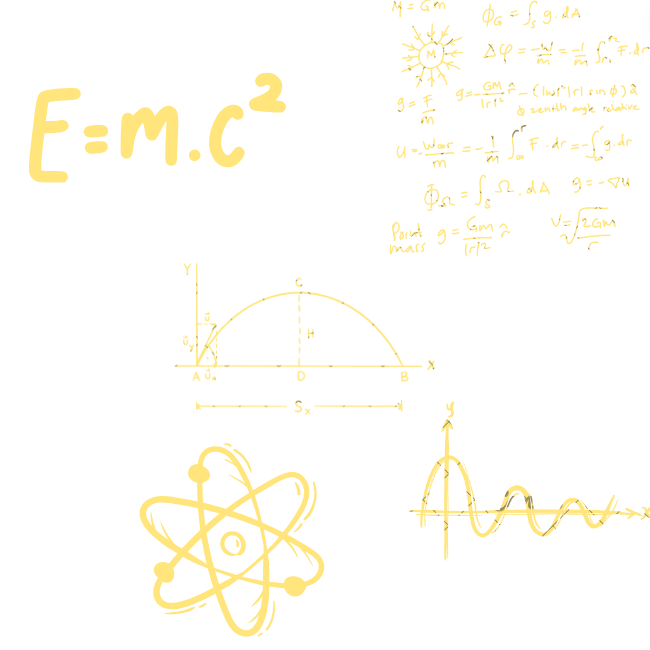 E=m.c²
M = Gm
Φ_G = ∫_S g.dA
M
Δφ = -W/m = -1/m ∫ F.dr
g = F/m
g = -GM/|r|² r̂ - (|ω|²|r| sin φ) â
φ zenith angle relative
U = W∞r/m = -1/m ∫_∞^r F.dr = -∫_∞^r g.dr
Φ_Ω = ∫_S Ω.dA
g = -∇U
Point mass g = Gm/|r|² r̂
V = √2GM/r
Y
C
H
A
D
B
X
Sx
y
x